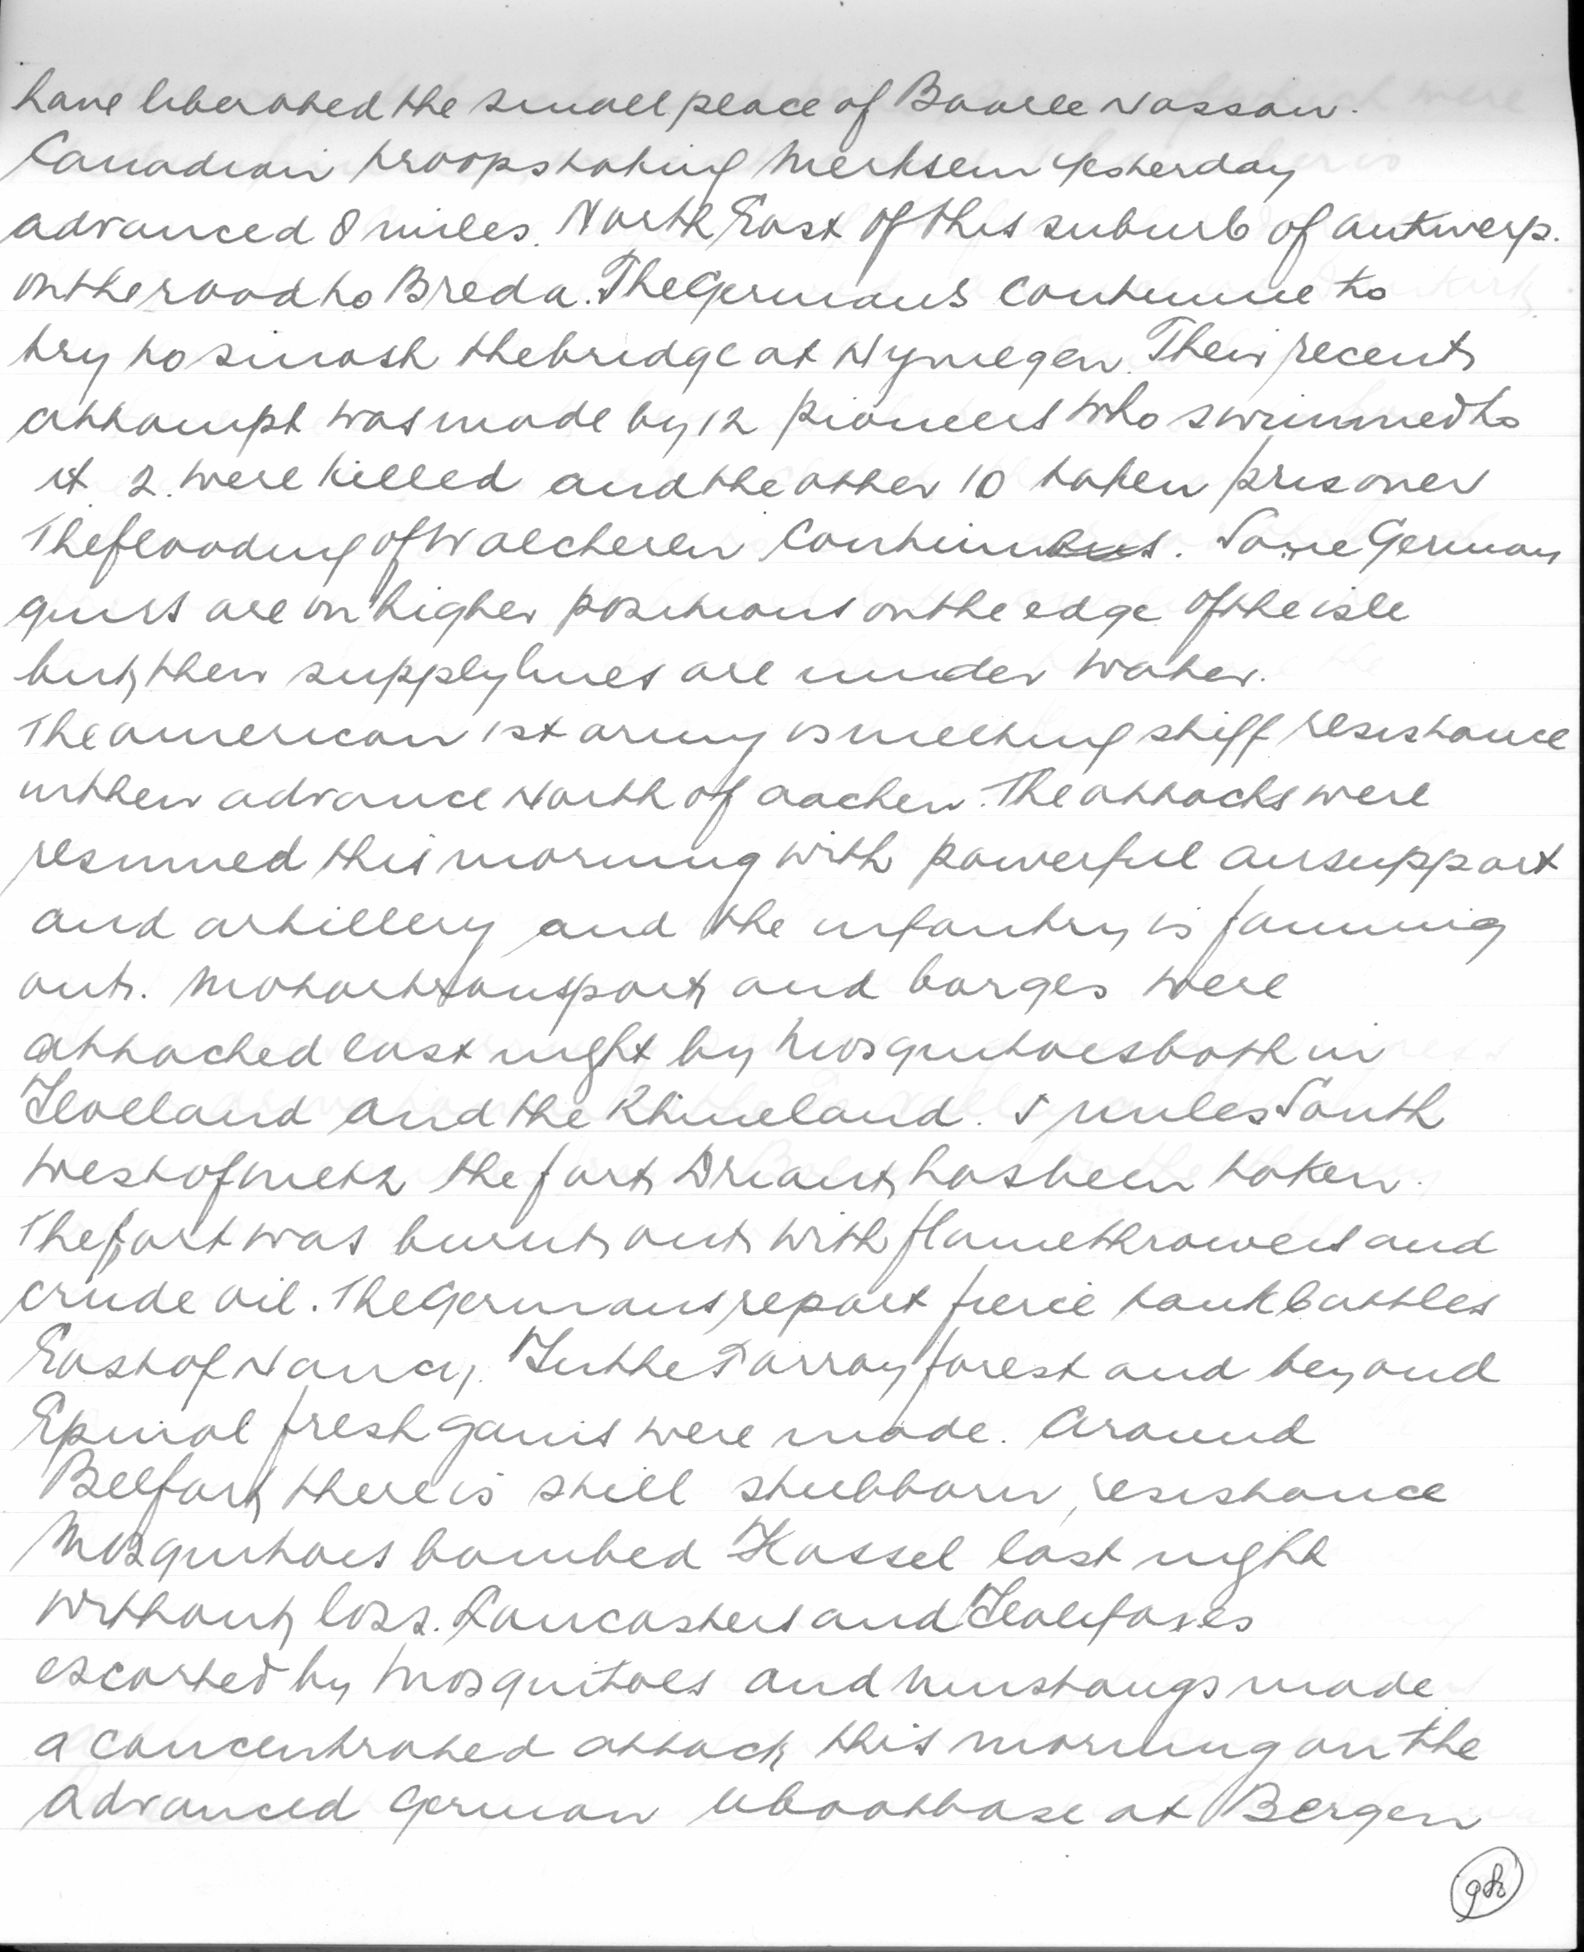 have liberated the small place of Baarle Nassau.
Canadian troops taking Merksem yesterday
advanced 8 miles. North East of this suburb of antwerp.
on the road to Breda. The Germans continue to
try to smash the bridge at Nymegen. Their recent
attampt was made by 12 pioneers who swimmed to
it 2. were killed and the other 10 taken prisoner
The flooding of Walcheren continues. Some German
guns are on higher positions on the edge of the isle
but their supplylines are under water.
The american 1st army is meeting stiff resistance
in their advance North of aachen. The attacks were
resumed this morning with powerful airsupport
and artillery and the infantry is fanning
out. Motortransport and barges were
attacked last night by Mosquitoes both in
Holland and the Rhineland. 5 miles South
West of Metz the fort Driant has been taken.
The fort was burnt out with flamethrowers and
crude oil. The Germans report fierce tankbattles
East of Nancy. In the Parroy forest and beyond
Epinal fresh gains were made. Around
Belfort there is still stubborn resistance
Mosquitoes bombed Kassel last night
without loss. Lancasters and Halifaxes
escorted by Mosquitoes and Mustangs made
a concentrated attack this morning on the
advanced German uboatbase at Bergen